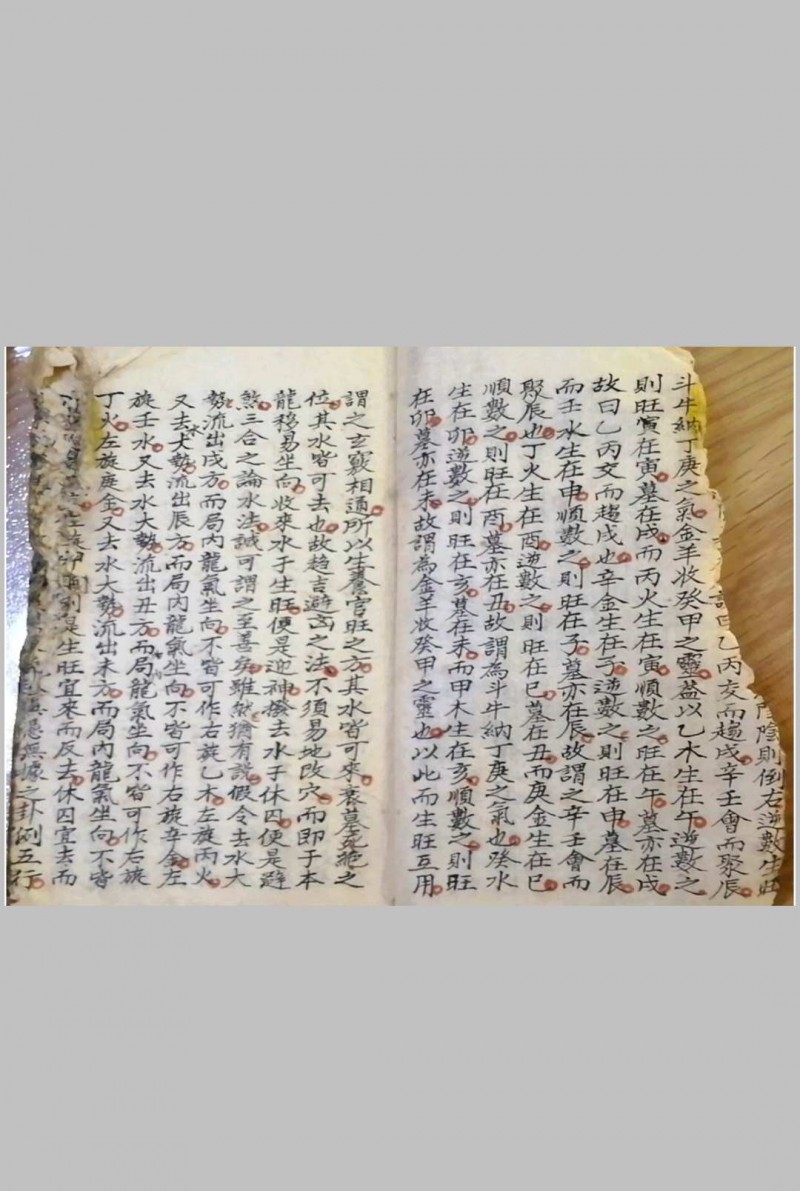 陰則倒右逆數生旺
曰乙丙交而趨戌辛壬會而聚辰
斗牛納丁庚之氣金羊收癸甲之靈蓋以乙木生在午逆數之
則旺寅在寅墓在戌而丙火生在寅順數之旺在午墓亦在戌
故曰乙丙交而趨戌也辛金生在子逆數之則旺在申墓在辰
而壬水生在申順數之則旺在子墓亦在辰故謂之辛壬會而
聚辰也丁火生在酉逆數之則旺在巳墓在丑而庚金生在巳
順數之則旺在酉墓亦在丑故謂為斗牛納丁庚之氣也癸水
生在卯逆數之則旺在亥墓在未而甲木生在亥順數之則旺
在卯墓亦在未故謂為金羊收癸甲之靈也以此而生旺互用
謂之玄竅相通所以生養官旺之方其水皆可來衰墓死絕之
位其水皆可去也故趨吉避凶之法不須易地改穴而即于本
龍移易坐向收來水于生旺便是迎神撥去水于休囚便是避
煞三合之論水法誠可謂之至善矣雖然猶有說假令去水大
勢流出戌方而局內龍氣坐向不皆可作右旋乙木左旋丙火
又去大勢流出辰方而局內龍氣坐向不皆可作右旋辛金左
旋壬水又去水大勢流出丑方而局龍氣坐向不皆可作右旋
丁火左旋庚金又去水大勢流出未方而局內龍氣坐向不皆
是生旺宜來而反去休囚宜去而
無據之卦例五行